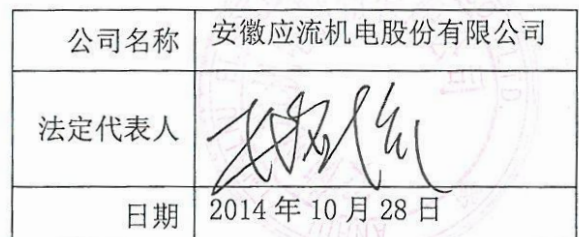 公司名称 安徽应流机电股份有限公司
法定代表人
日期 2014年10月28日